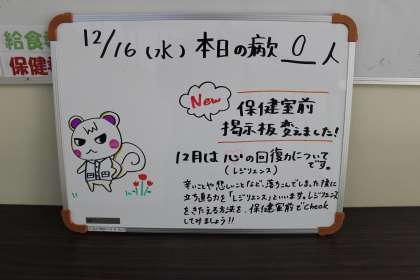 給食
保健
12/16(水) 本日の病欠 0人
New
保健室前
掲示板変えました!
12月は心の回復力について
です。
(レジリエンス)
辛いことや悲しいことなど、落ちこんでしまった後に
立ち直る力を「レジリエンス」といいます。レジリエンス
をきたえる方法を、保健室前でCheck
してみましょう!!